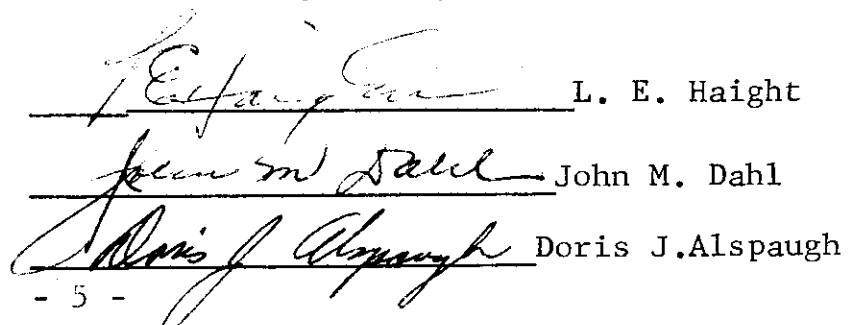 L E Haight L. E. Haight
John M Dahl John M. Dahl
Doris J Alspaugh Doris J.Alspaugh
- 5 -